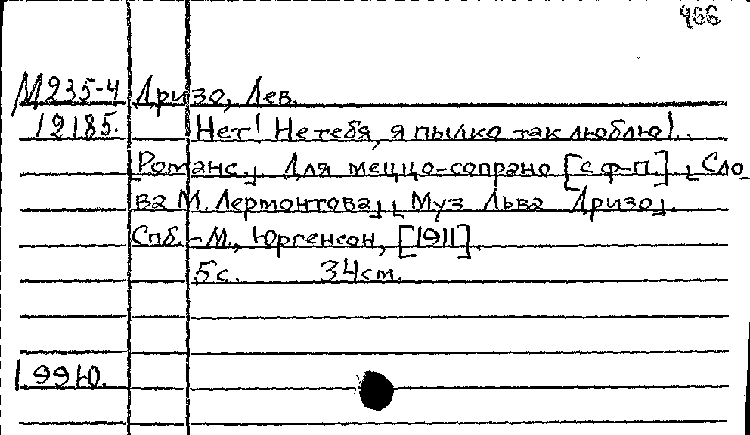 966
М235-4 Дризо, Лев.
12185. Нет! Не тебя, я пылко так люблю!..
[Романс.] Для меццо-сопрано [с ф-п.] [Сло
ва М. Лермонтова] [Муз Льва Дризо].
Спб.-М., Юргенсон, [1911].
5 с. 34 см.
199Ю.